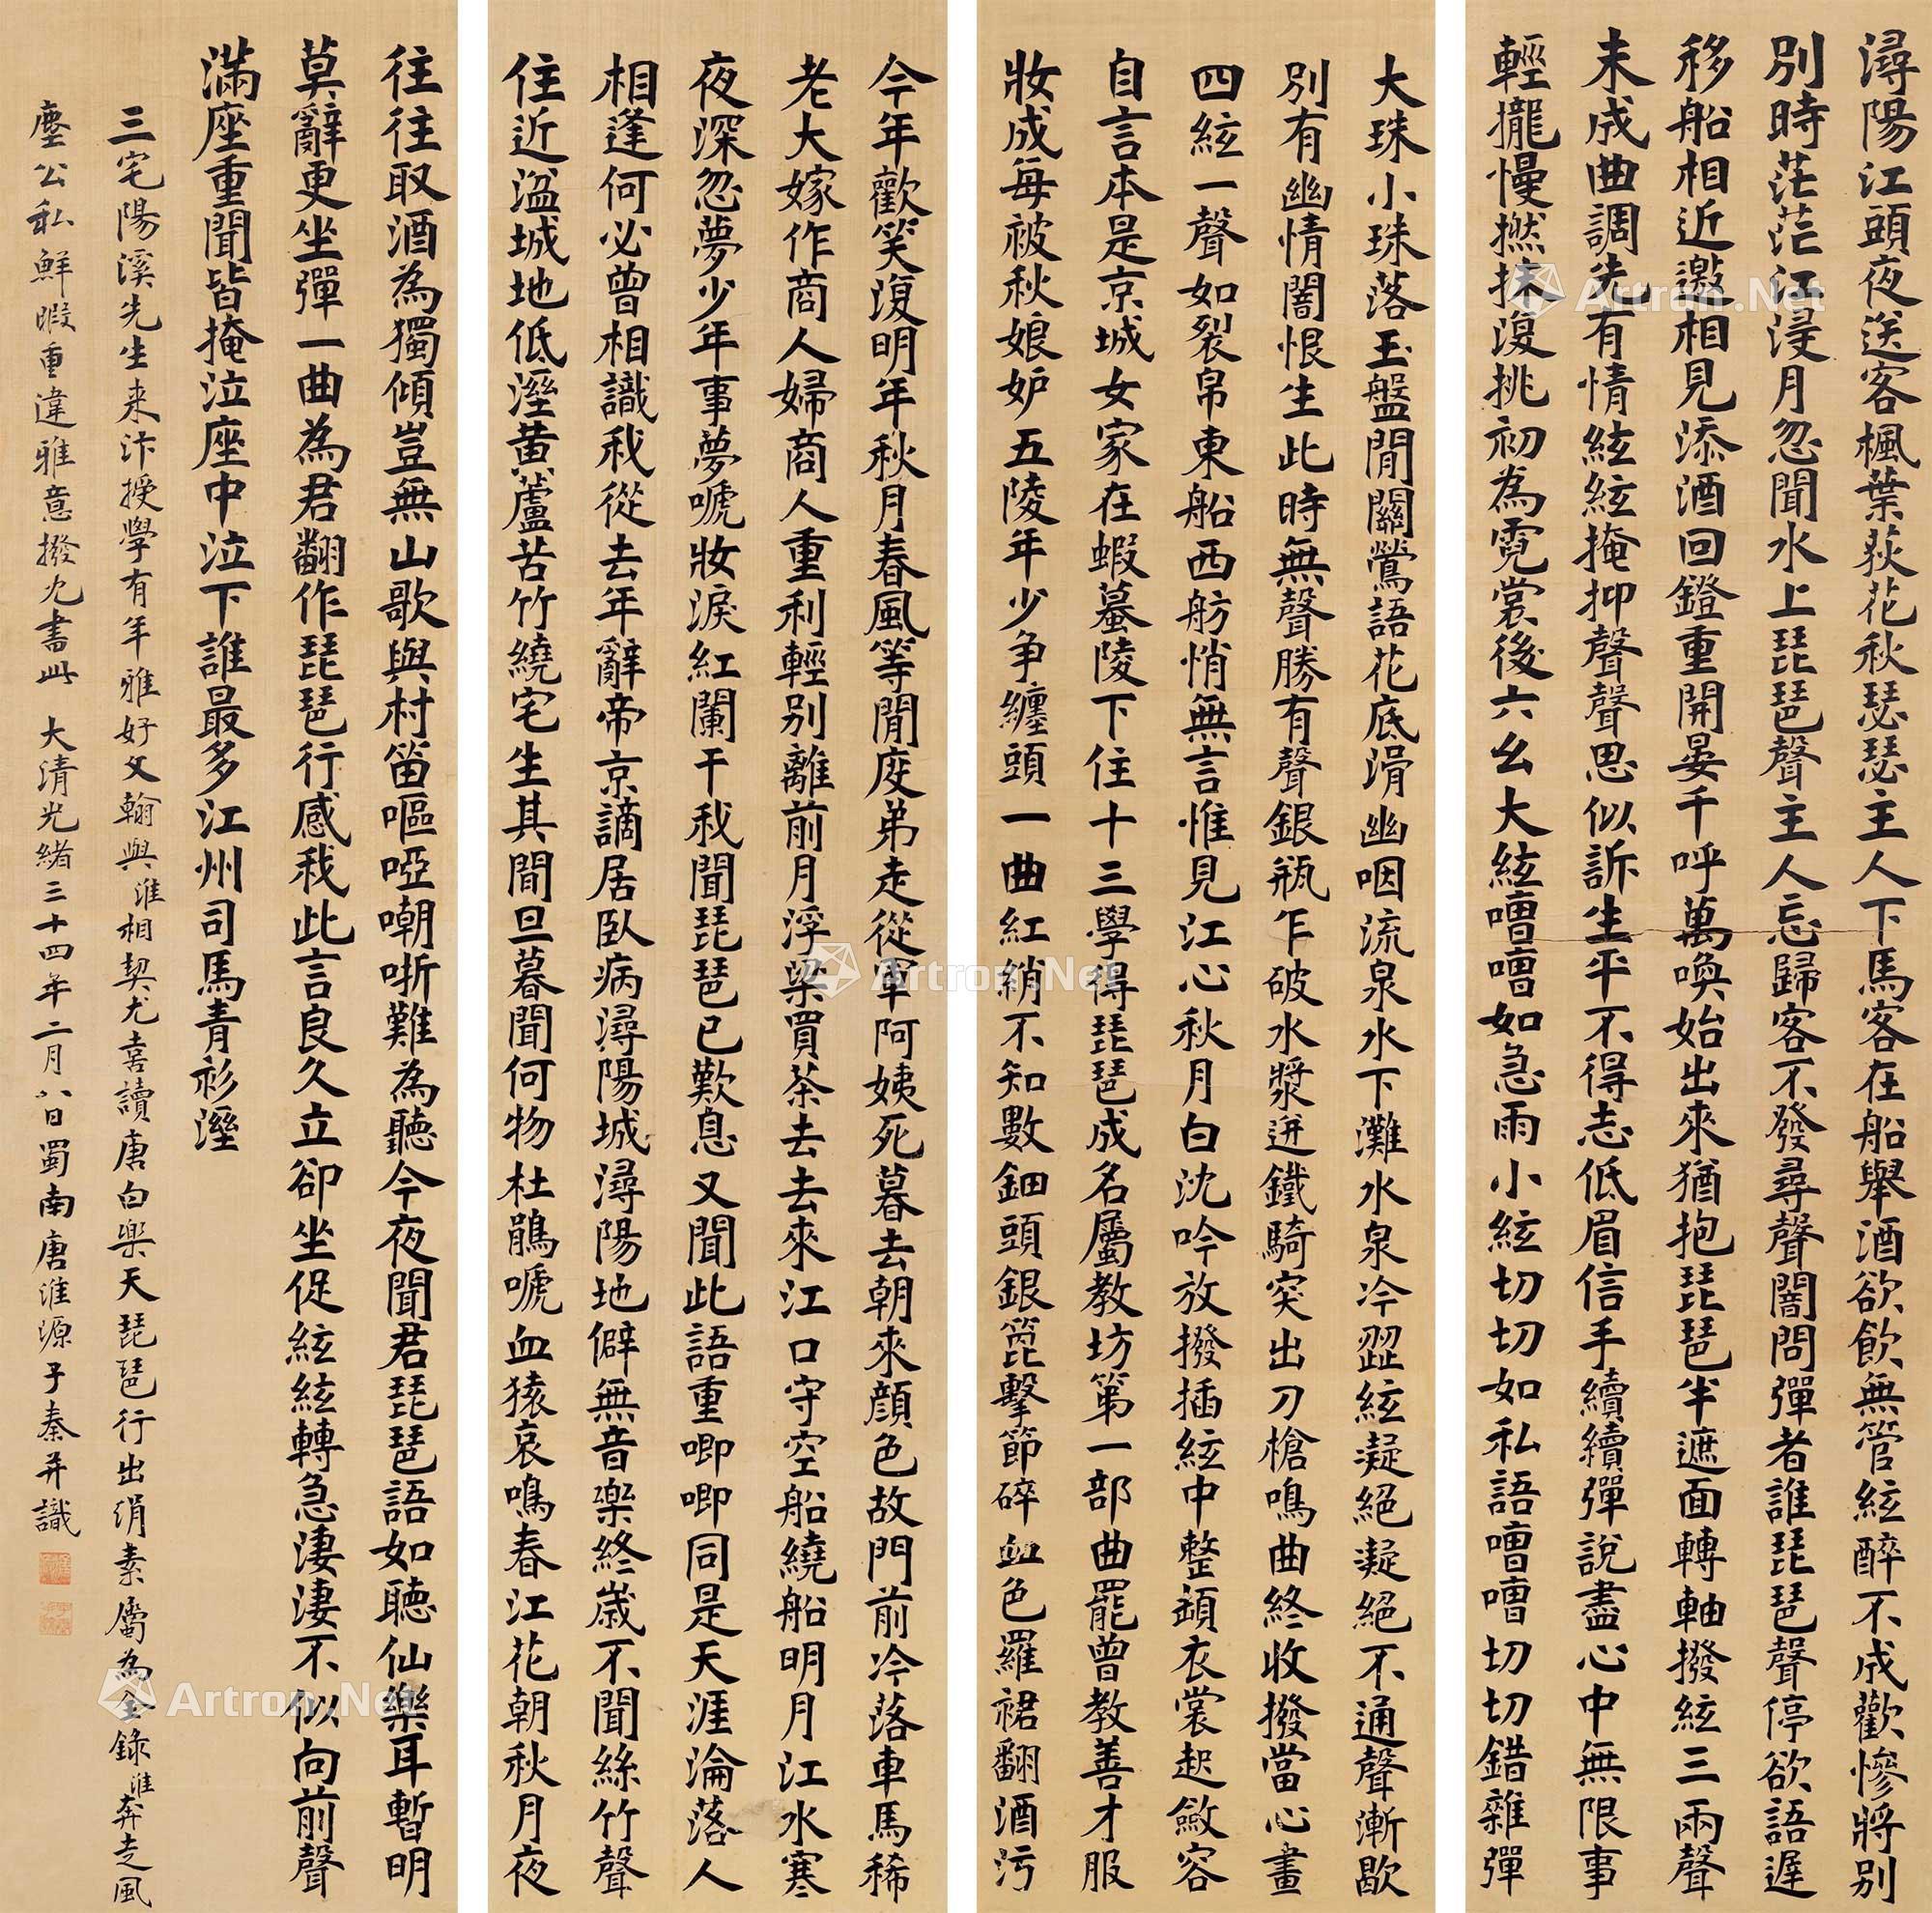 潯陽江頭夜送客楓葉荻花秋瑟瑟主人下馬客在船舉酒欲飲無管絃醉不成歡慘將別
別時茫茫江浸月忽聞水上琵琶聲主人忘歸客不發尋聲闇問彈者誰琵琶聲停欲語遲
移船相近邀相見添酒回鐙重開晏千呼萬喚始出來猶抱琵琶半遮面轉軸撥絃三兩聲
未成曲調先有情絃絃掩抑聲聲思似訴生平不得志低眉信手續續彈說盡心中無限事
輕攏慢撚抹復挑初為霓裳後六幺大絃嘈嘈如急雨小絃切切如私語嘈嘈切切錯雜彈
大珠小珠落玉盤閒關鶯語花底滑幽咽流泉水下灘水泉冷澀絃凝絕凝絕不通聲漸歇
別有幽情闇恨生此時無聲勝有聲銀瓶乍破水漿迸鐵騎突出刀槍鳴曲終收撥當心畫
四絃一聲如裂帛東船西舫悄無言惟見江心秋月白沈吟放撥插絃中整頓衣裳起斂容
自言本是京城女家在蝦蟇陵下住十三學得琵琶成名屬教坊第一部曲罷曾教善才服
妝成每被秋娘妒五陵年少爭纏頭一曲紅綃不知數鈿頭銀篦擊節碎血色羅裙翻酒污
今年歡笑復明年秋月春風等閒度弟走從軍阿姨死暮去朝來顏色故門前冷落車馬稀
老大嫁作商人婦商人重利輕別離前月浮梁買茶去去來江口守空船繞船明月江水寒
夜深忽夢少年事夢嗁妝淚紅闌干我聞琵琶已歎息又聞此語重唧唧同是天涯淪落人
相逢何必曾相識我從去年辭帝京謫居臥病潯陽城潯陽地僻無音樂終歲不聞絲竹聲
住近湓城地低溼黃蘆苦竹繞宅生其間旦暮聞何物杜鵑嗁血猿哀鳴春江花朝秋月夜
往往取酒為獨傾豈無山歌與村笛嘔啞嘲哳難為聽今夜聞君琵琶語如聽仙樂耳暫明
莫辭更坐彈一曲為君翻作琵琶行感我此言良久立卻坐促絃絃轉急淒淒不似向前聲
滿座重聞皆掩泣座中泣下誰最多江州司馬青衫溼
三宅陽溪先生来汴授學有年雅好文翰與淮相契尤喜讀唐白樂天琵琶行出绢素屬為全錄淮奔走風
塵公私鮮暇重違雅意撥冗書此 大清光緒三十四年二月八日蜀南唐淮源子秦并識
Artron.Net
Artron.Net
Artron.Net